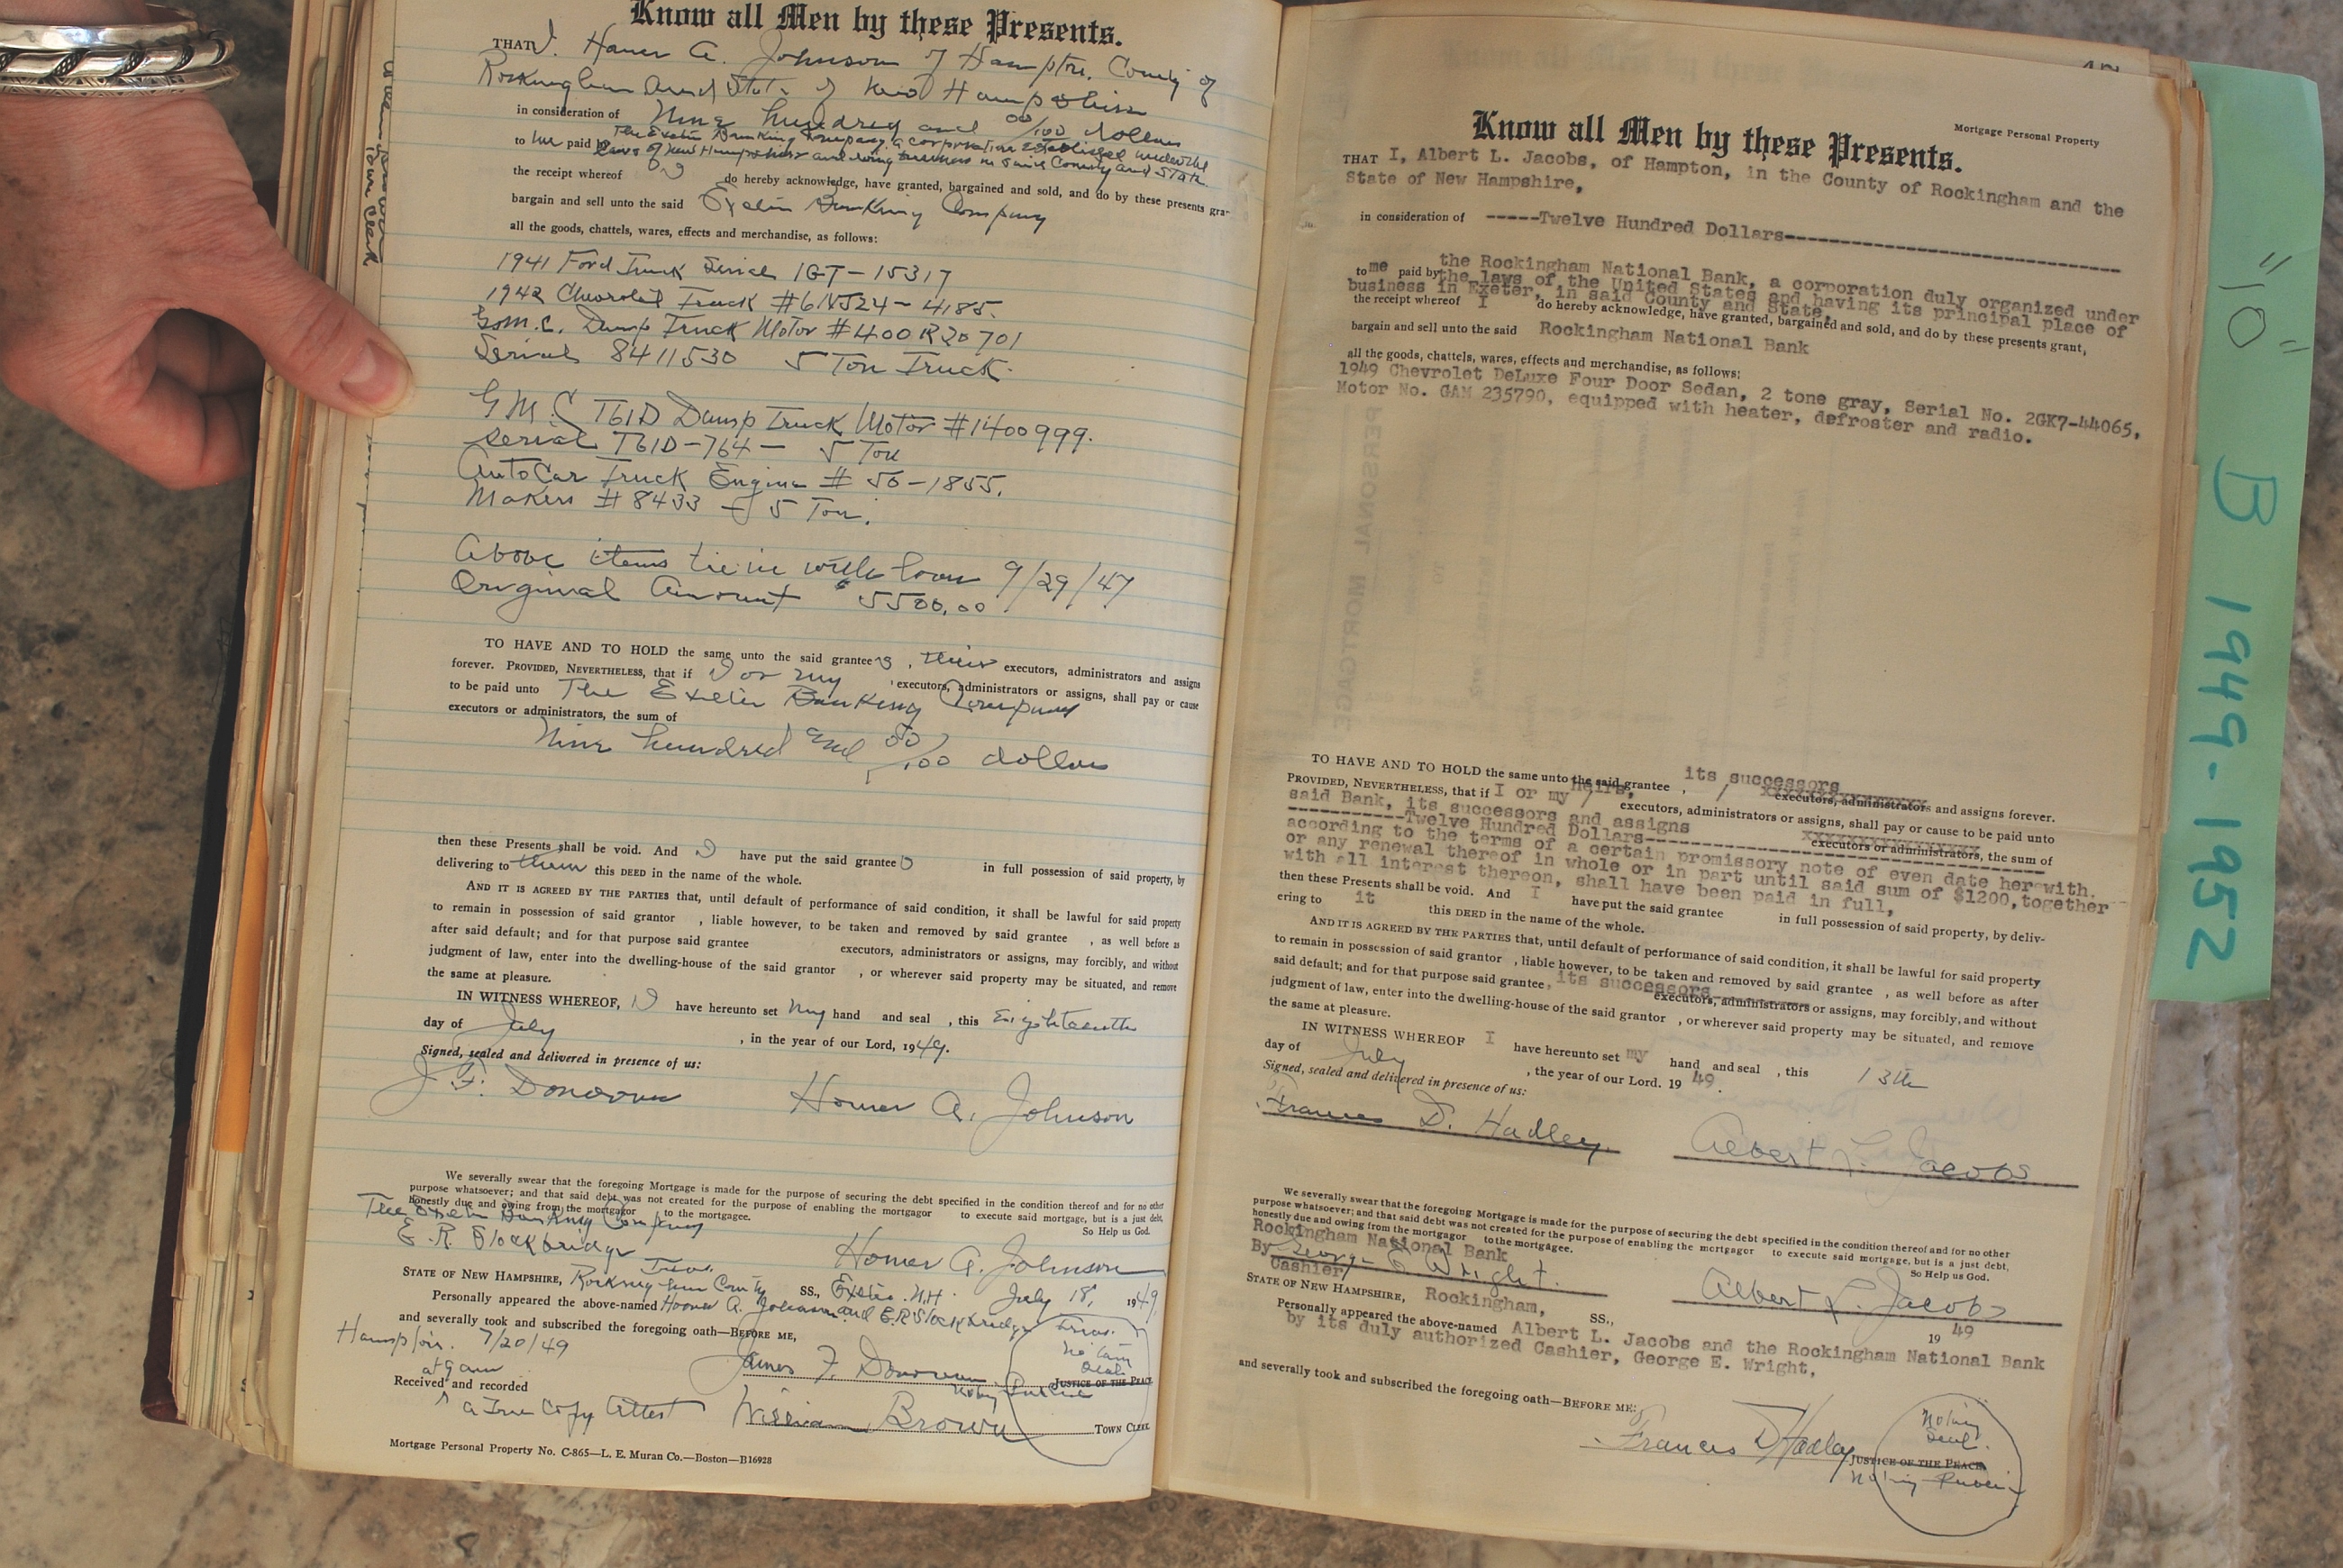 Know all Men by these Presents.
THAT I, Homer A. Johnson of Hampton, County of
Rockingham and State of New Hampshire
in consideration of Nine hundred and 00/100 dollars
to me paid by The Exeter Banking Company, a corporation established under the
laws of New Hampshire and doing business in said County and State
the receipt whereof I do hereby acknowledge, have granted, bargained and sold, and do by these presents gra
bargain and sell unto the said Exeter Banking Company
all the goods, chattels, wares, effects and merchandise, as follows:
1941 Ford Truck Serial 1GT-15317
1942 Chevrolet Truck #6NJ24-4185.
G.M.C. Dump Truck Motor #400R20701
Serial 8411530 5 Ton Truck.
G.M.C T61D Dump Truck Motor #1400999.
Serial T61D-764- 5 Ton
AutoCar Truck Engine # 56-1855.
Makers # 8433 - 5 Ton.
Above items tie in with loan 9/29/47
Original Amount $5500.00
TO HAVE AND TO HOLD the same unto the said grantees, their executors, administrators and assigns
forever. PROVIDED, NEVERTHELESS, that if I or my executors, administrators or assigns, shall pay or cause
to be paid unto The Exeter Banking Company
executors or administrators, the sum of
Nine hundred and 00/100 dollars
then these Presents shall be void. And I have put the said grantee in full possession of said property, by
delivering to them this DEED in the name of the whole.
AND IT IS AGREED BY THE PARTIES that, until default of performance of said condition, it shall be lawful for said property
to remain in possession of said grantor , liable however, to be taken and removed by said grantee , as well before as
after said default; and for that purpose said grantee executors, administrators or assigns, may forcibly, and without
judgment of law, enter into the dwelling-house of the said grantor , or wherever said property may be situated, and remove
the same at pleasure.
IN WITNESS WHEREOF, I have hereunto set my hand and seal , this Eighteenth
day of July , in the year of our Lord, 1949.
Signed, sealed and delivered in presence of us:
J. F. Donovan Homer A. Johnson
We severally swear that the foregoing Mortgage is made for the purpose of securing the debt specified in the condition thereof and for no other
purpose whatsoever; and that said debt was not created for the purpose of enabling the mortgagor to execute said mortgage, but is a just debt,
honestly due and owing from the mortgagor to the mortgagee.
So Help us God.
The Exeter Banking Company
E. R. Stockbridge Homer A. Johnson
Treas.
STATE OF NEW HAMPSHIRE, Rockingham County SS., Exeter N.H. July 18, 1949
Personally appeared the above-named Homer A. Johnson and E. R. Stockbridge Treas.
and severally took and subscribed the foregoing oath—BEFORE ME,
Hampton. 7/20/49
at 9 am
James F. Donovan JUSTICE OF THE PEACE
Notary Public
Seal
Received and recorded
A True Copy Attest William Brown TOWN CLERK
Mortgage Personal Property No. C-865—L. E. Muran Co.—Boston—B16928
Town Clerk
Mortgage Personal Property
Know all Men by these Presents.
THAT I, Albert L. Jacobs, of Hampton, in the County of Rockingham and the
State of New Hampshire,
in consideration of -----Twelve Hundred Dollars-----
the Rockingham National Bank, a corporation duly organized under
to me paid by the laws of the United States and having its principal place of
business in Exeter, in said County and State,
the receipt whereof I do hereby acknowledge, have granted, bargained and sold, and do by these presents grant,
bargain and sell unto the said Rockingham National Bank
all the goods, chattels, wares, effects and merchandise, as follows:
1949 Chevrolet DeLuxe Four Door Sedan, 2 tone gray, Serial No. 2GK7-44065,
Motor No. GAM 235790, equipped with heater, defroster and radio.
TO HAVE AND TO HOLD the same unto the said grantee , its successors executors, administrators and assigns forever.
PROVIDED, NEVERTHELESS, that if I or my heirs, executors, administrators or assigns, shall pay or cause to be paid unto
said Bank, its successors and assigns executors or administrators, the sum of
----------Twelve Hundred Dollars----------
according to the terms of a certain promissory note of even date herewith.
or any renewal thereof in whole or in part until said sum of $1200, together
with all interest thereon, shall have been paid in full,
then these Presents shall be void. And I have put the said grantee in full possession of said property, by deliv-
ering to it this DEED in the name of the whole.
AND IT IS AGREED BY THE PARTIES that, until default of performance of said condition, it shall be lawful for said property
to remain in possession of said grantor , liable however, to be taken and removed by said grantee , as well before as after
said default; and for that purpose said grantee, its successors executors, administrators or assigns, may forcibly, and without
judgment of law, enter into the dwelling-house of the said grantor , or wherever said property may be situated, and remove
the same at pleasure.
IN WITNESS WHEREOF I have hereunto set my hand and seal , this 13th
day of July , the year of our Lord. 1949.
Signed, sealed and delivered in presence of us:
Frances D. Hadley. Albert L. Jacobs
We severally swear that the foregoing Mortgage is made for the purpose of securing the debt specified in the condition thereof and for no other
purpose whatsoever; and that said debt was not created for the purpose of enabling the mortgagor to execute said mortgage, but is a just debt,
honestly due and owing from the mortgagor to the mortgagee.
So Help us God.
Rockingham National Bank
By George E Wright. Albert L. Jacobs
Cashier
STATE OF NEW HAMPSHIRE, Rockingham, SS., 1949
Personally appeared the above-named Albert L. Jacobs and the Rockingham National Bank
by its duly authorized Cashier, George E. Wright,
and severally took and subscribed the foregoing oath—BEFORE ME:
Frances D Hadley JUSTICE OF THE PEACE
Notary Public
Notary
Seal.
"10" B 1949-1952